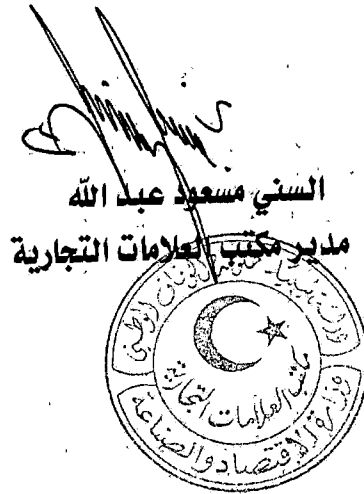 السني مسعود عبد الله
مدير مكتب العلامات التجارية
مكتب العلامات التجارية
وزارة الاقتصاد والصناعة